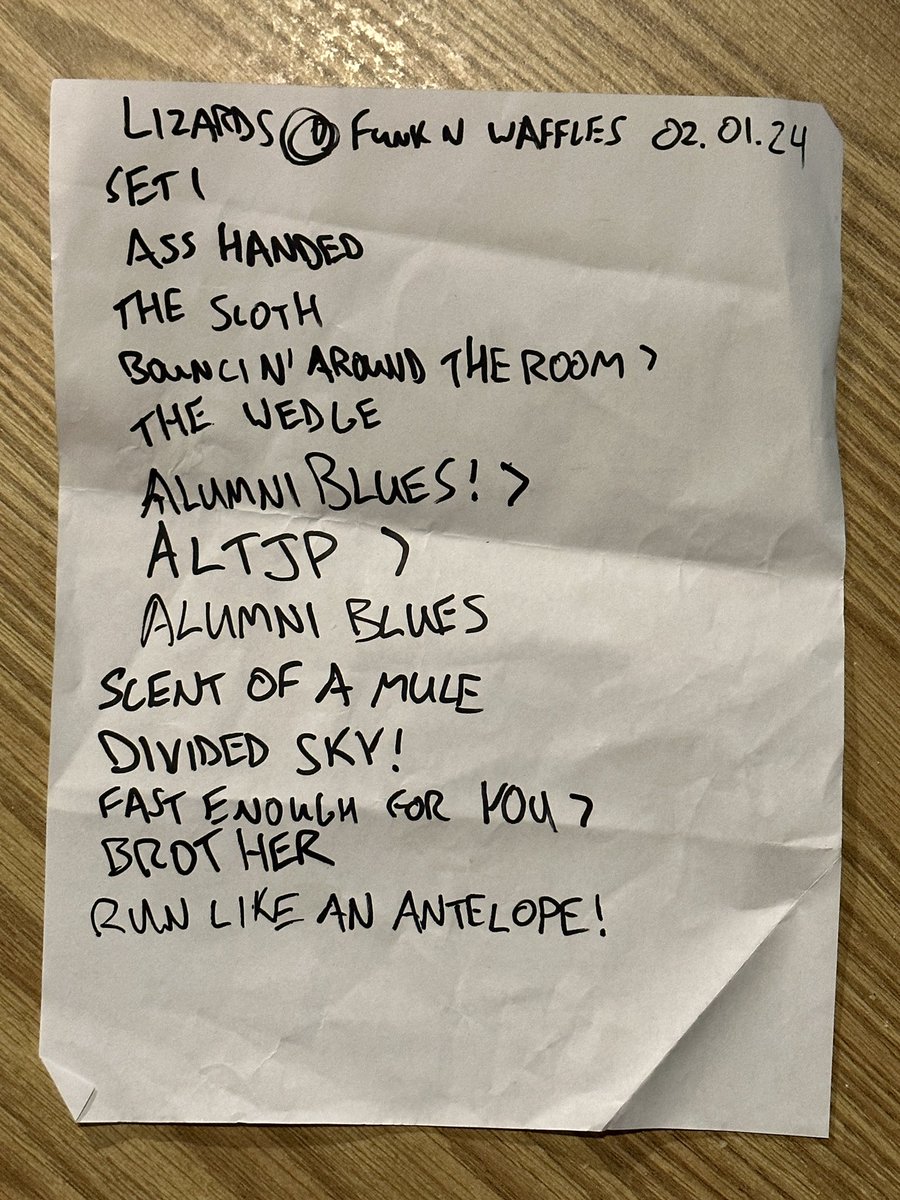 LIZARDS @ FUNK N WAFFLES 02.01.24
SET 1
ASS HANDED
THE SLOTH
BOUNCIN' AROUND THE ROOM >
THE WEDGE
ALUMNI BLUES! >
ALTJP >
ALUMNI BLUES
SCENT OF A MULE
DIVIDED SKY!
FAST ENOUGH FOR YOU >
BROTHER
RUN LIKE AN ANTELOPE!